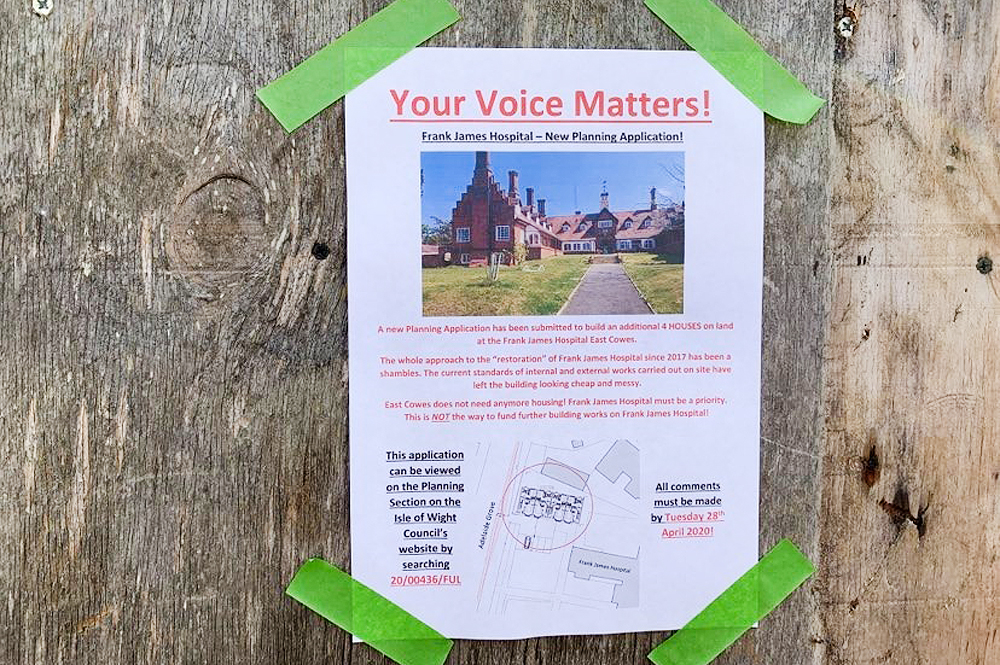 Your Voice Matters!
Frank James Hospital – New Planning Application!
A new Planning Application has been submitted to build an additional 4 HOUSES on land
at the Frank James Hospital East Cowes.
The whole approach to the "restoration" of Frank James Hospital since 2017 has been a
shambles. The current standards of internal and external works carried out on site have
left the building looking cheap and messy.
East Cowes does not need anymore housing! Frank James Hospital must be a priority.
This is NOT the way to fund further building works on Frank James Hospital!
This application
can be viewed
on the Planning
Section on the
Isle of Wight
Council's
website by
searching
20/00436/FUL
Adelaide Grove
Frank James Hospital
All comments
must be made
by Tuesday 28th
April 2020!